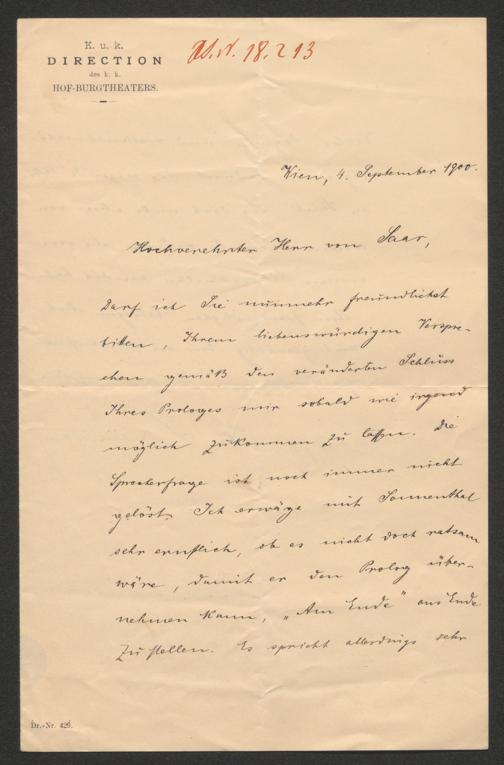 K. u. k.
DIRECTION
des k. k.
HOF-BURGTHEATERS.
18.213
Wien, 4. September 1900.
Hochverehrter Herr von Saar,
Darf ich Sie nunmehr freundlichst
bitten, Ihrem liebenswürdigen Verspre-
chen gemäß den veränderten Schluss
Ihres Prologes mir sobald wie irgend
möglich zukommen zu lassen. Die
Sprecherfrage ist noch immer nicht
gelöst. Ich erwäge mit Sonnenthal
sehr ernstlich, ob es nicht doch ratsam
wäre, damit er den Prolog über-
nehmen kann, „Am Ende" ans Ende
zu stellen. Es spricht allerdings sehr
Dr.-Nr. 426.